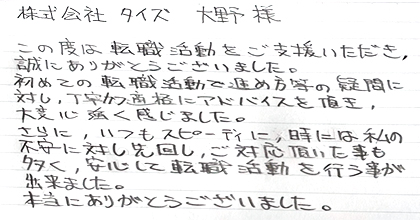 株式会社 タイズ 大野 様
この度は転職活動をご支援いただき,
誠にありがとうございました。
初めての転職活動で進め方等の疑問に
対し,丁寧かつ直接にアドバイスを頂き,
大変心強く感じました。
さらに,いつもスピーディに,時には私の
不安に対し先回し,ご対応頂いた事も
多く,安心して転職活動を行う事が
出来ました。
本当にありがとうございました。